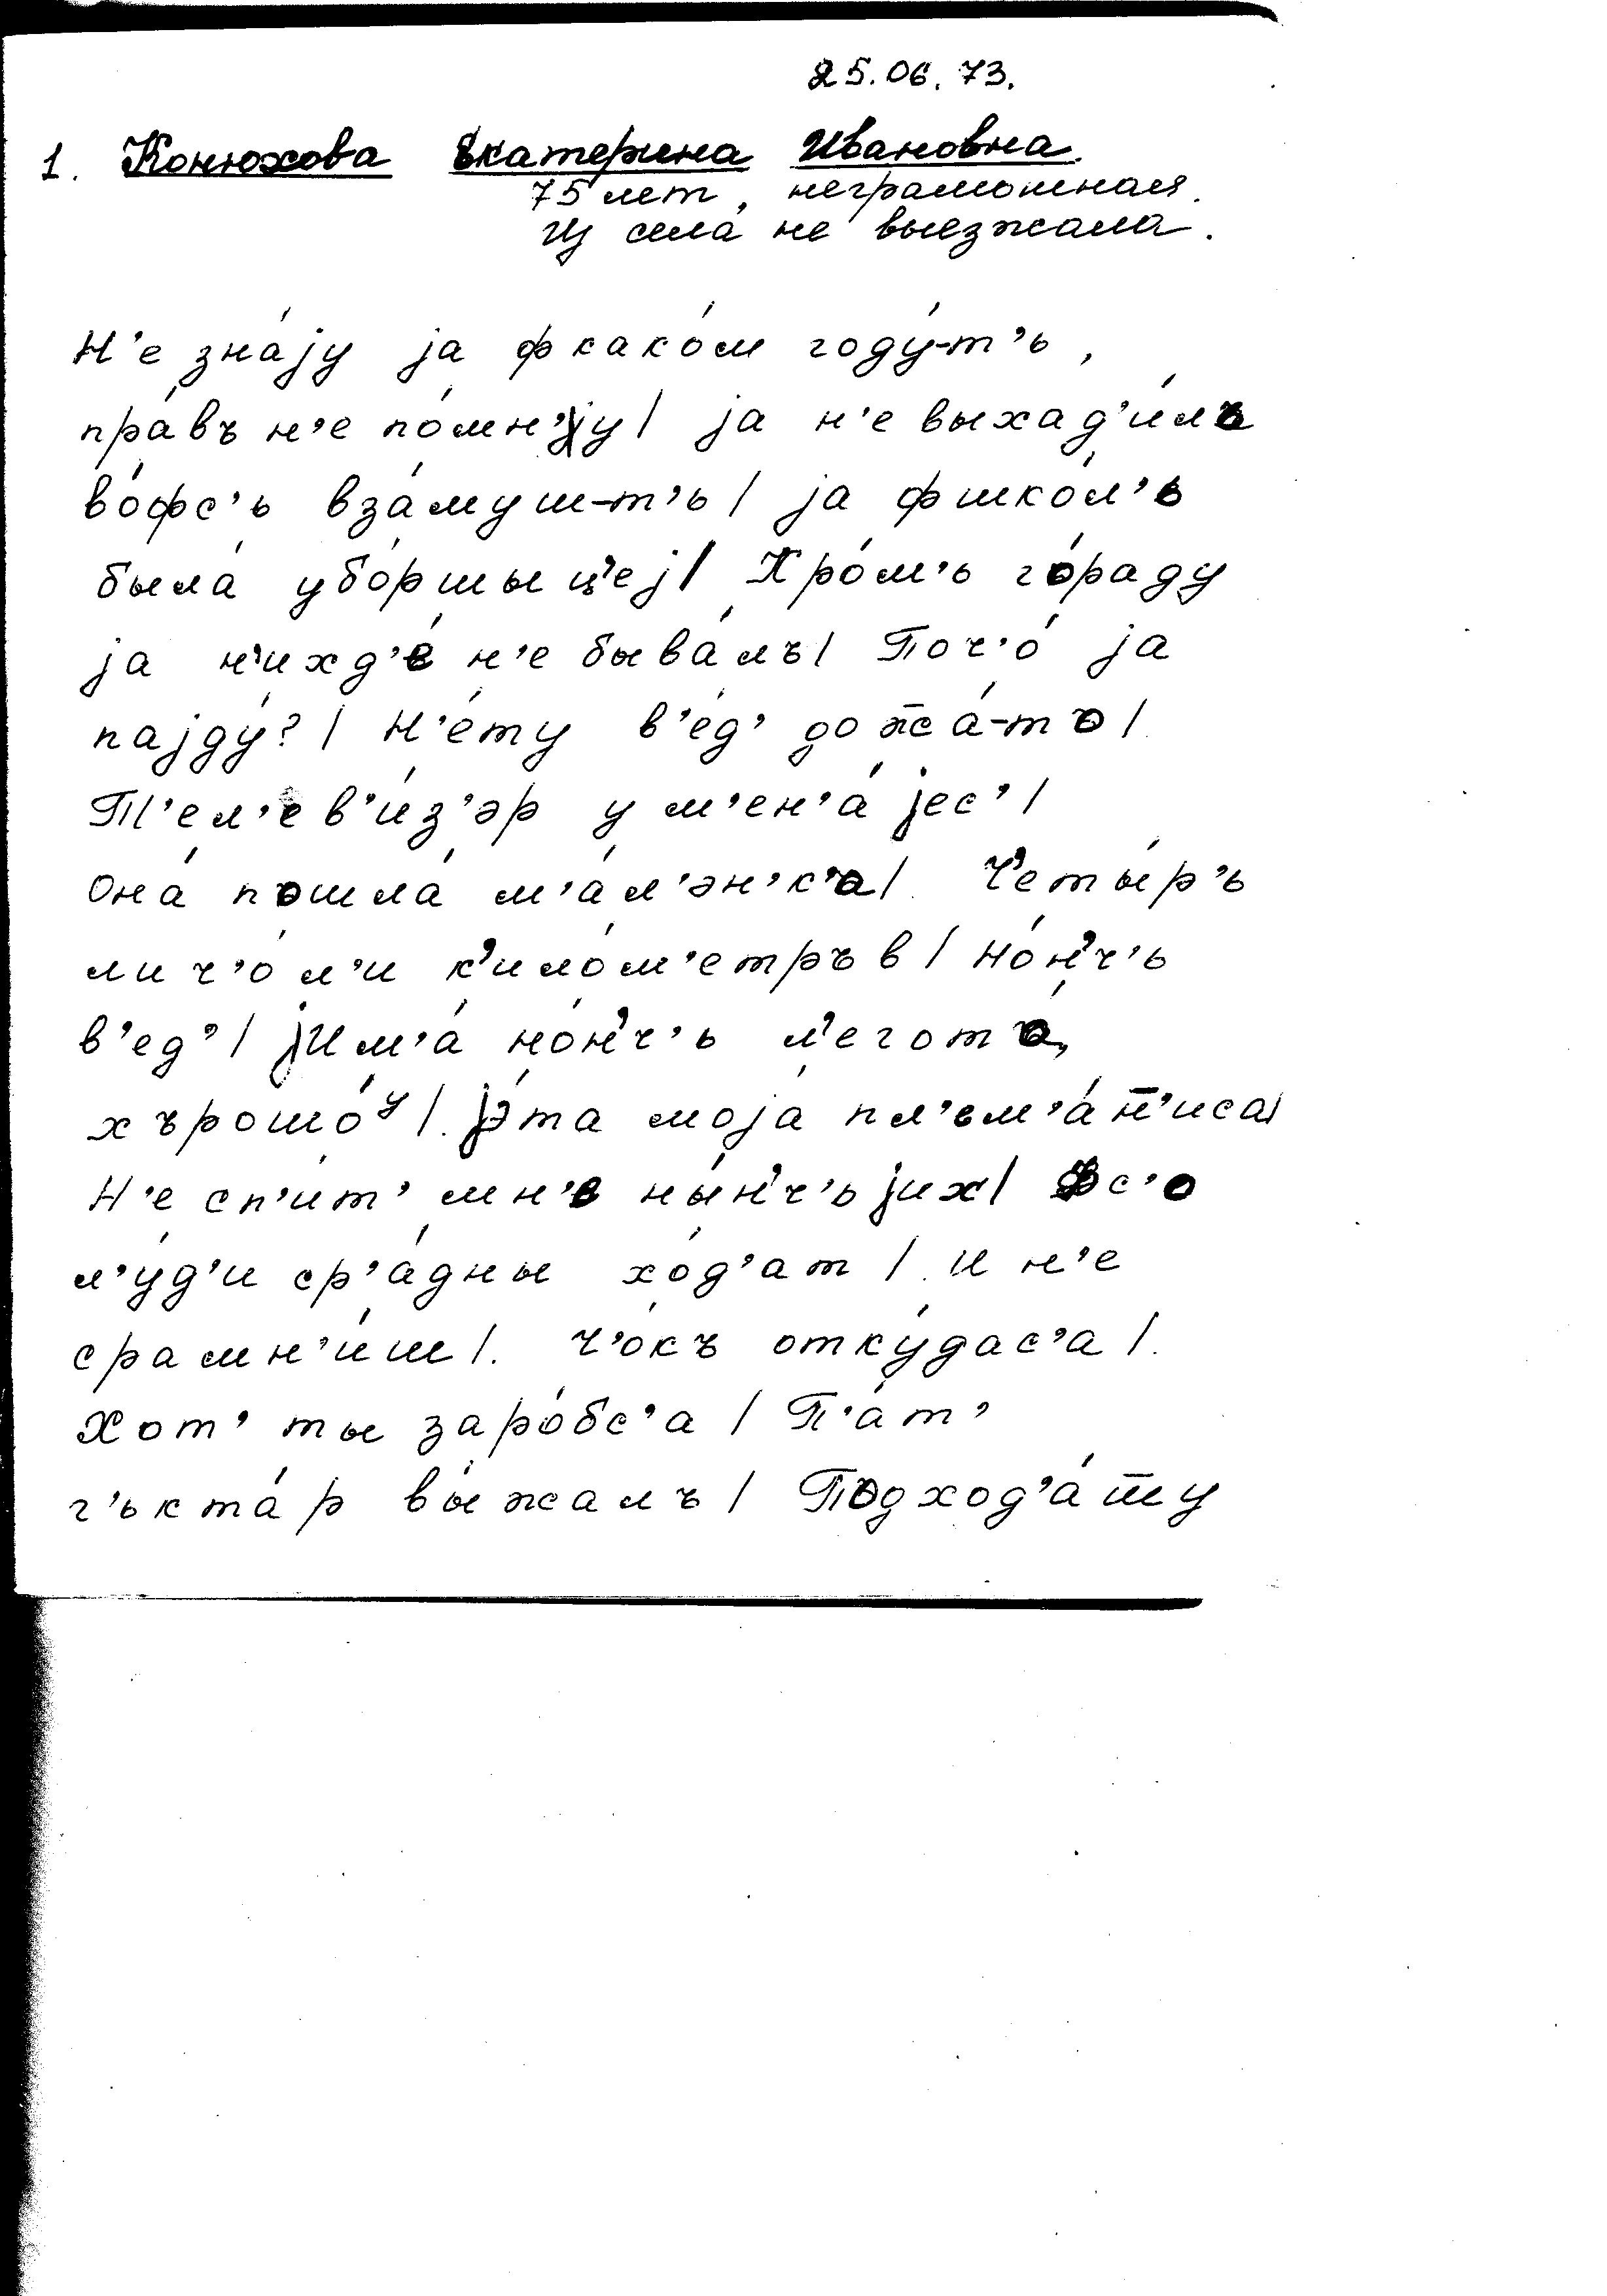 25.06.73.
1. Конюхова Екатерина Ивановна.
75 лет, неграмотная.
Из села не выезжала.
Н'е зна́jу jа ф како́м году́-т'ь,
пра́въ н'е по́мн'jу/ jа н'е выхад'и́лъ
во́фс'ь вза́муш-т'ь/ jа ф шко́л'ь
была́ убо́ршыц'еj/ Кро́м'ь го́раду
jа н'ихд'е́ н'е быва́лъ/ Поч'о́ jа
паjду́?/ Н'е́ту в'е́д' дож̅а́-тъ/
Т'ел'ев'и́з'эр у м'ен'а́ jес'/
Она́ пошла́ м'а́л'эн'к'а/. Ч'еты́р'ь
ли ч'о́ л'и к'ило́м'етръв/ но́н'ч'ь
в'ед'/ jим'а́ но́н'ч'ь л'егота́,
хърошо́у/. jэ́та моjа́ пл'ем'а́н̅'иса/
Н'е сп'и́т' мн'е ны́н'ч'ь jих/ Фс'о
л'у́д'и ср'а́дны хо́д'ат/. И н'е
срамн'и́ш/. Ч'о́къ отку́дас'а/.
Хот' ты заро́бс'а/ П'а́т'
г'ькта́р вы́жалъ/ Подход'а́ш̅у